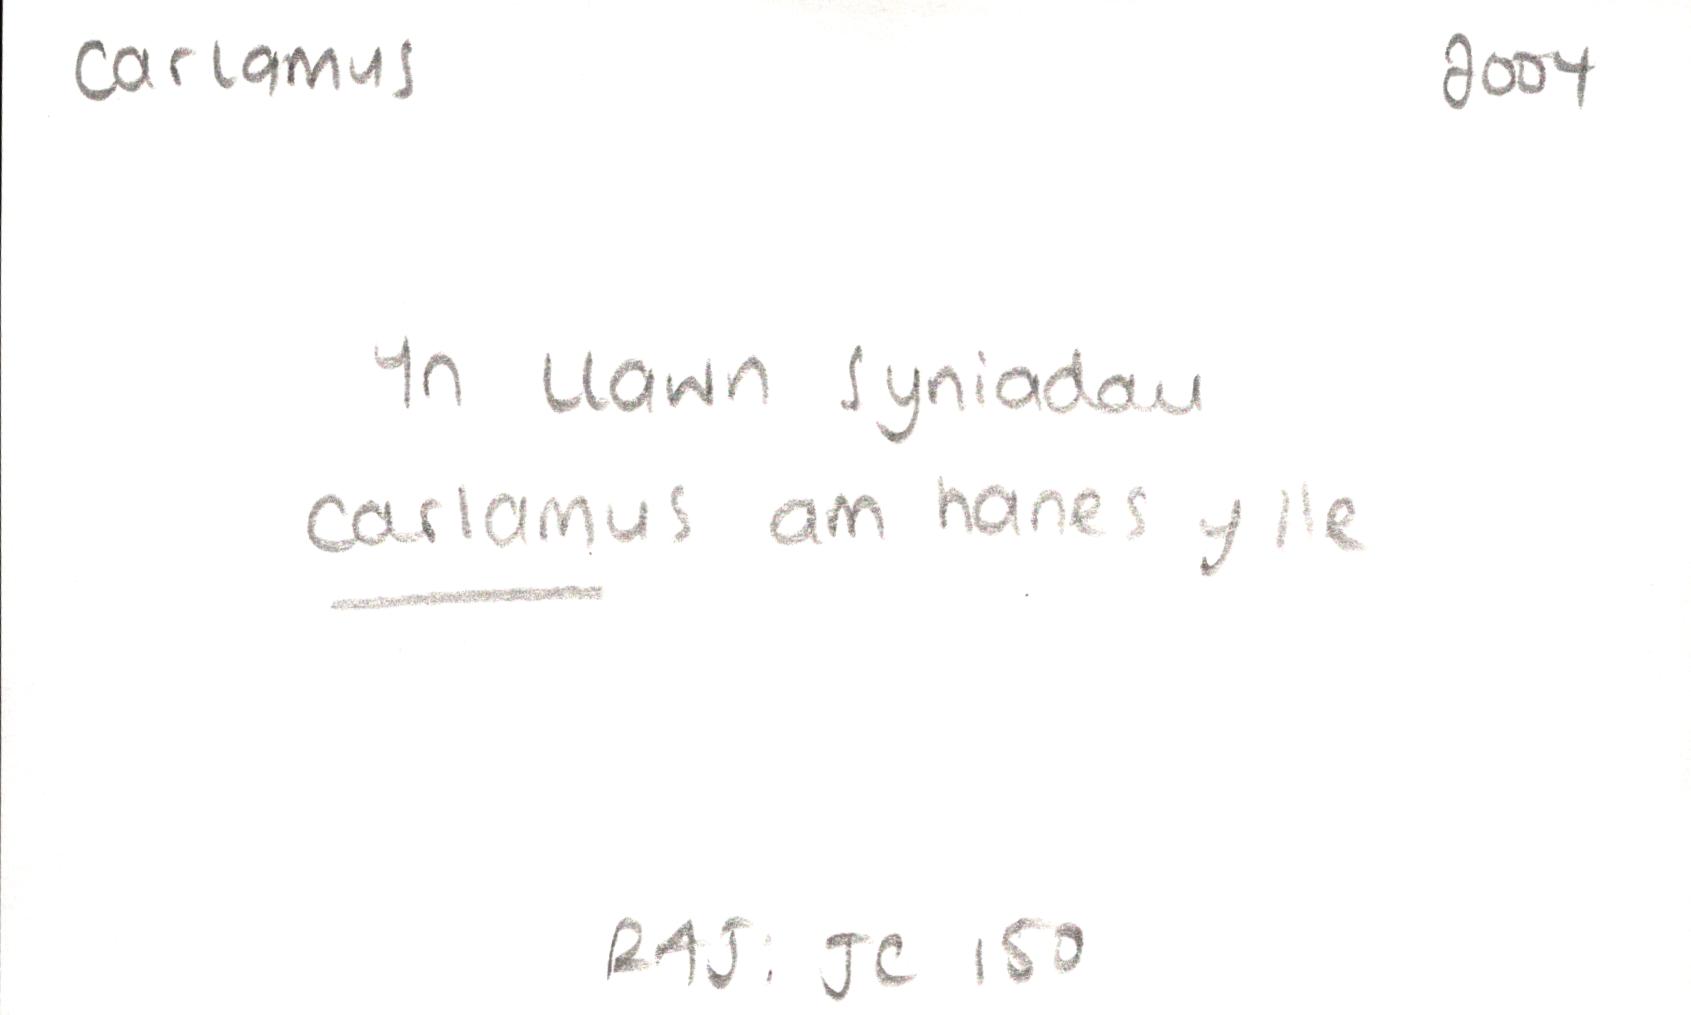 carlamus 2004
yn llawn syniadau
carlamus am hanes y lle
RAJ: JC 150